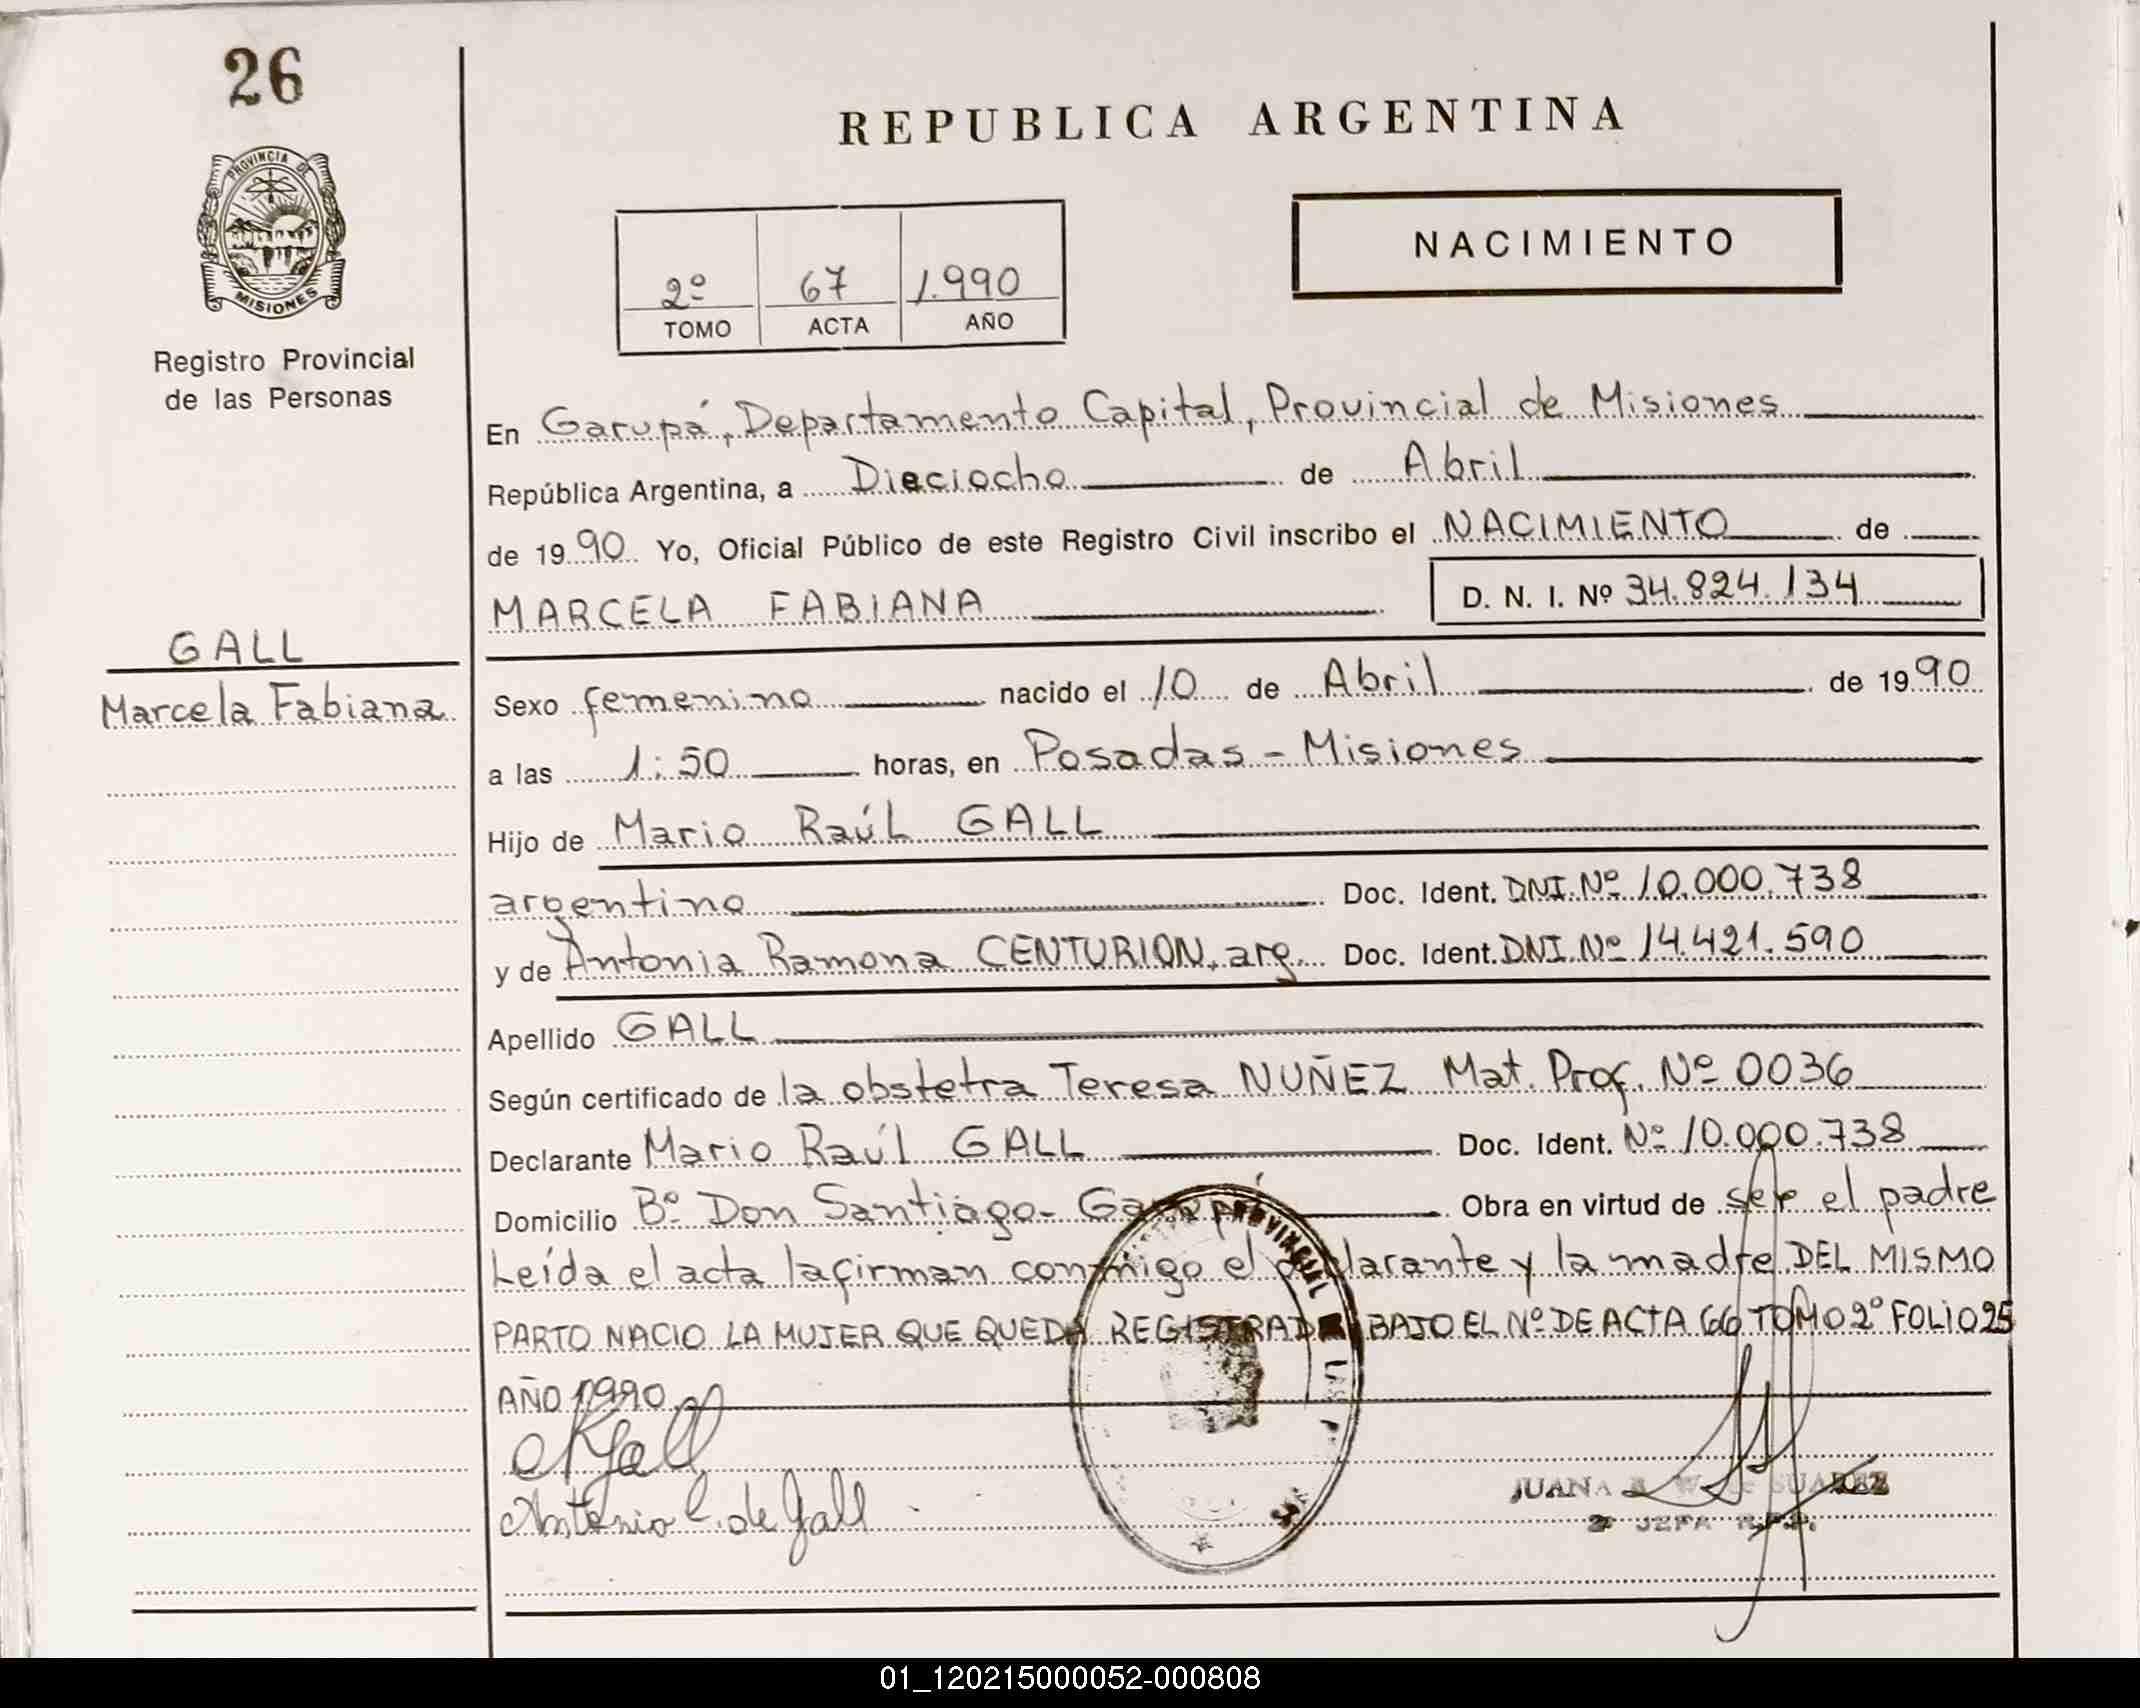 26
REPUBLICA ARGENTINA
PROVINCIA DE
MISIONES
NACIMIENTO
2º 67 1.990
TOMO ACTA AÑO
Registro Provincial
de las Personas
En Garupá, Departamento Capital, Provincial de Misiones
República Argentina, a Dieciocho de Abril
de 1990 Yo, Oficial Público de este Registro Civil inscribo el NACIMIENTO de
MARCELA FABIANA D. N. I. Nº 34.824.134
GALL
Marcela Fabiana
Sexo femenino nacido el 10 de Abril de 1990
a las 1:50 horas, en Posadas - Misiones
Hijo de Mario Raúl GALL
argentino Doc. Ident. DNI. Nº 10.000.738
y de Antonia Ramona CENTURION, arg. Doc. Ident. DNI. Nº 14.421.590
Apellido GALL
Según certificado de la obstetra Teresa NUÑEZ Mat. Prof. Nº 0036
Declarante Mario Raúl GALL Doc. Ident. Nº 10.000.738
Domicilio Bº Don Santiago - Garupá Obra en virtud de ser el padre
Leída el acta la firman conmigo el declarante y la madre DEL MISMO
PARTO NACIO LA MUJER QUE QUEDA REGISTRADA BAJO EL Nº DE ACTA 66 TOMO 2º FOLIO 25
AÑO 1990
PROVINCIAL DE LAS
Gall
Antonia C. de Gall
JUANA SUAREZ
2º JEFA R.P.P.
01_120215000052-000808